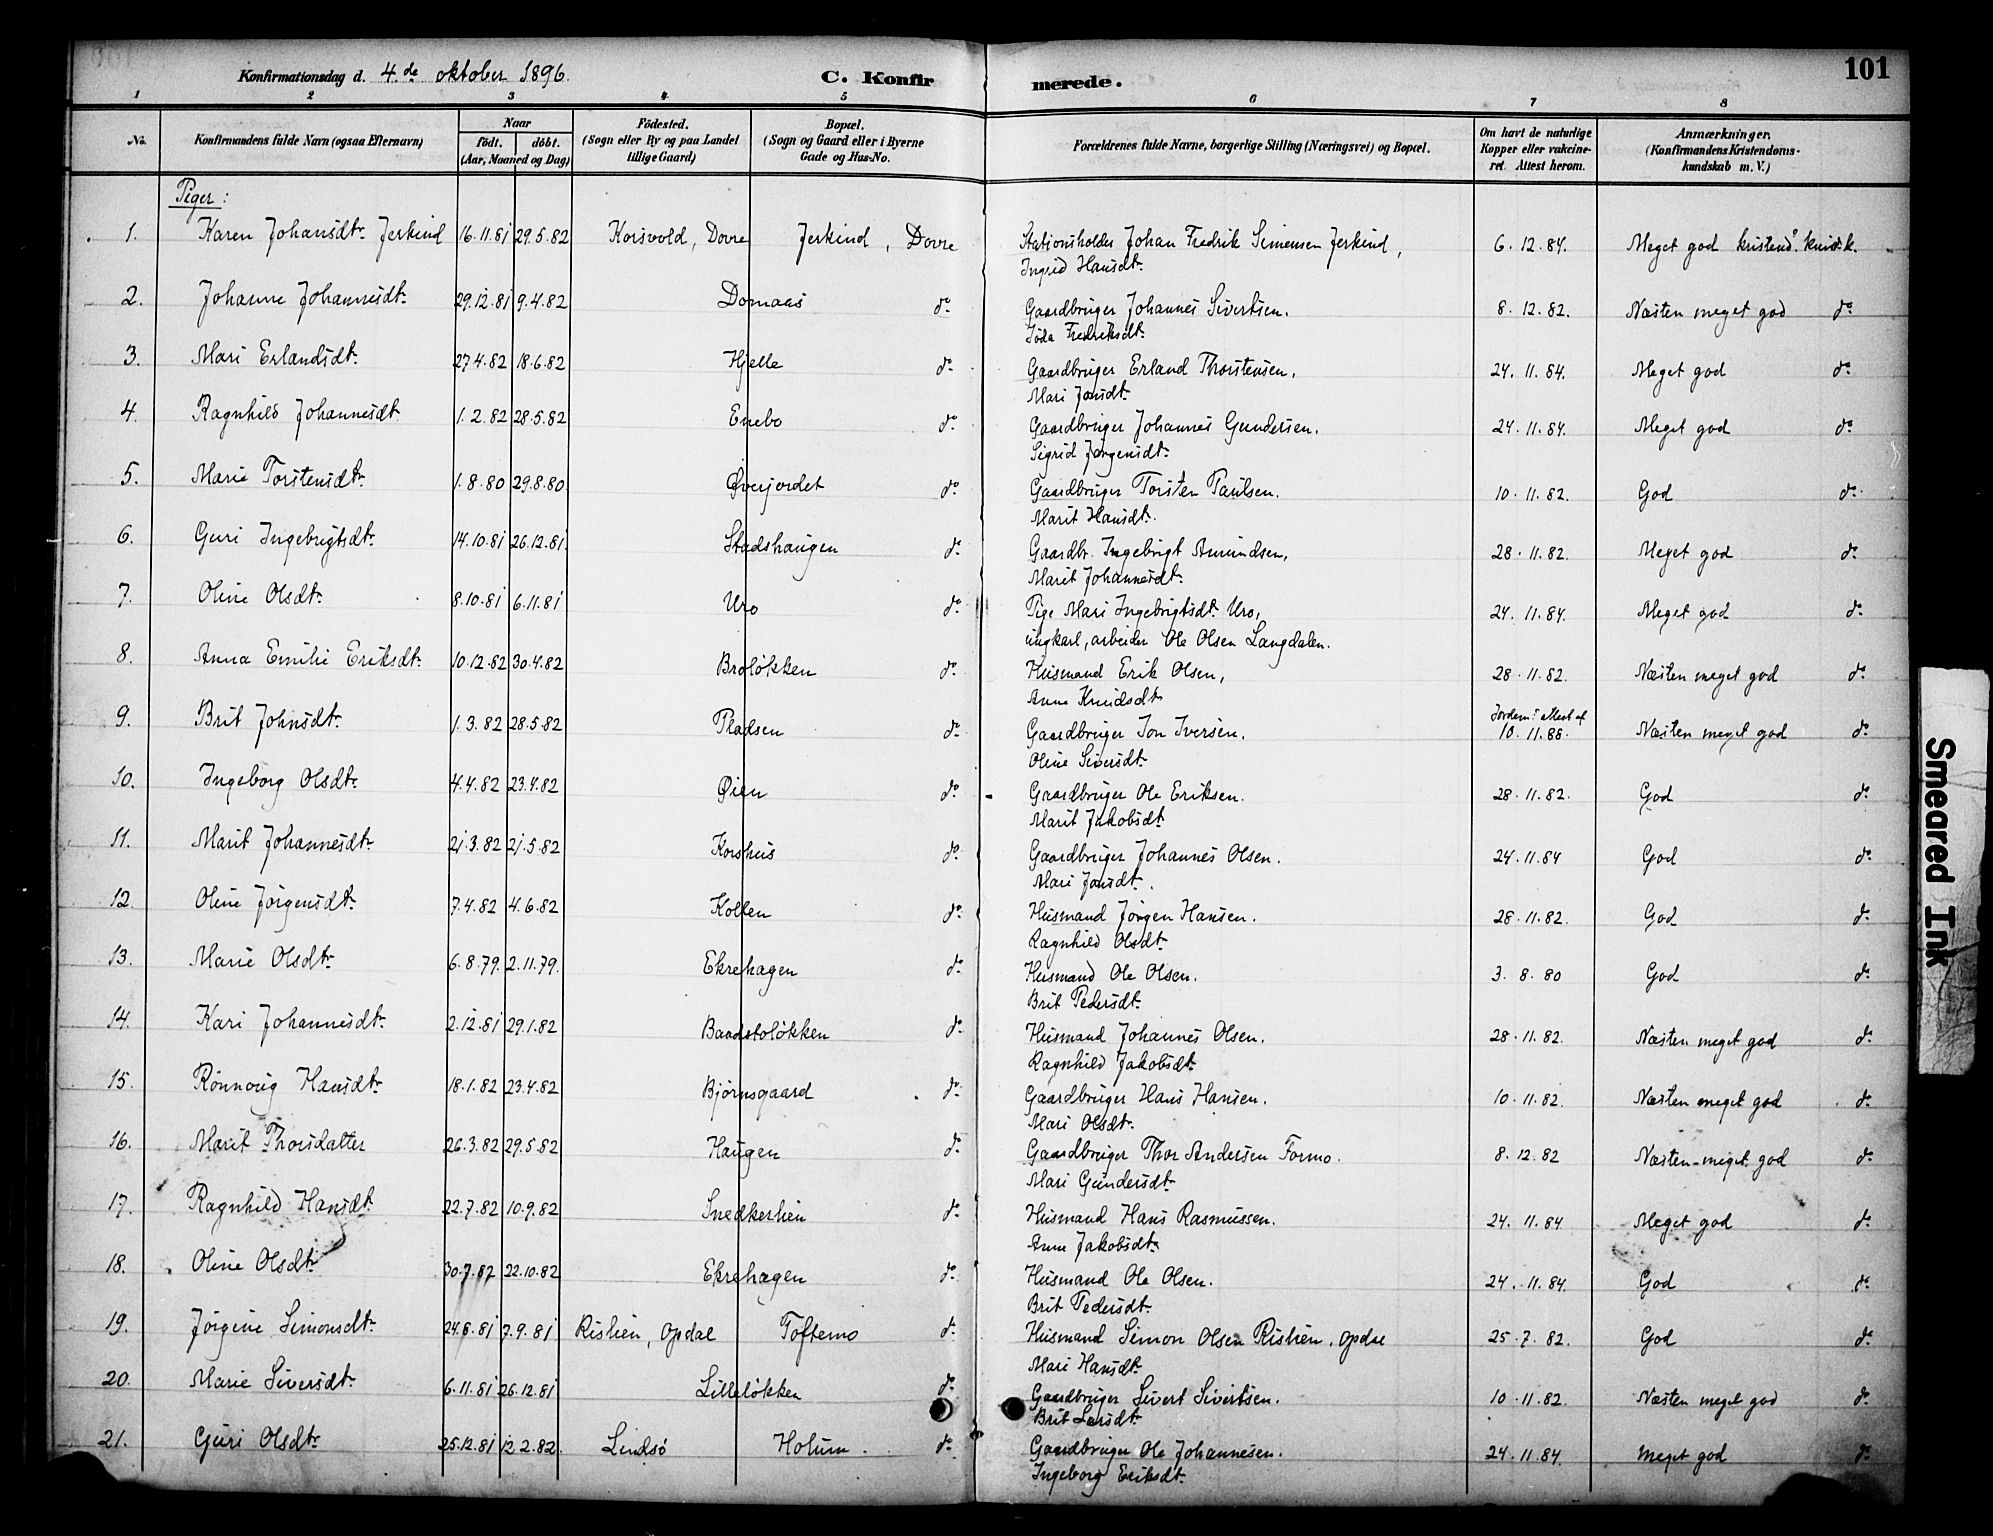 Konfirmationsdag d. 4.de oktober 1896. C. Konfir merede. 101
1 2 3 4 5 6 7 8
No. Konfirmandens fulde Navn (ogsaa Efternavn) Naar födt. döbt. (Aar, Maaned og Dag) Födested. (Sogn eller By og paa Landet tillige Gaard) Bopæl. (Sogn og Gaard eller i Byerne Gade og Hus-No. Forældrenes fulde Navne, borgerlige Stilling (Næringsvei) og Bopæl. Om havt de naturlige Kopper eller vakcineret. Attest herom. Anmærkninger. (Konfirmandens Kristendomskundskab m. V.)
Piger:
1. Karen Johansdt. Jerkind 16.11.81 29.5.82 Korsvold, Dovre Jerkind, Dovre Stationsholder Johan Fredrik Simensen Jerkind, 6.12.84. Meget god kristend. kundsk.
Ingrid Hansdt.
2. Johanne Johannesdt. 29.12.81 9.4.82 Domaas do. Gaardbruger Johannes Sivertsen. 8.12.82. Næsten meget god do.
Fredriksdt.
3. Mari Erlandsdt. 27.4.82 18.6.82 Hjelle do. Gaardbruger Erland Thorstensen. 24.11.84. Meget god do.
Mari Jonsdt.
4. Ragnhild Johannesdt. 1.2.82 28.5.82 Enebo do. Gaardbruger Johannes Gundersen. 24.11.84. Meget god do.
Sigrid Jørgensdt.
5. Marie Torstensdt. 1.8.80 29.8.80 Øverjordet do. Gaardbruger Torsten Paulsen. 10.11.82. God do.
Marit Hansdt.
6. Guri Ingebrigtsdt. 14.10.81 26.12.81. Stadshaugen do. Gaardbr. Ingebrigt Amundsen, 28.11.82. Meget god do.
Marit Johannesdt.
7. Oline Olsdt. 8.10.81 6.11.81 Uro do. Pige Mari Ingebrigtsdt. Uro, 24.11.84. Meget god do.
ungkarl, arbeider Ole Olsen Langdalen.
8. Anna Emilie Eriksdt. 10.12.82 30.4.82 Broløkken do. Husmand Erik Olsen, 28.11.82. Næsten meget god do.
Anne Knudsdt.
9. Brit Johnsdt. 1.3.82 28.5.82 Pladsen do. Gaardbruger Jon Iversen. Jordem: attest af 10.11.88. Næsten meget god do.
Oline Siversdt.
10. Ingeborg Olsdt. 4.4.82 23.4.82 Øien do. Gaardbruger Ole Eriksen. 28.11.82. God do.
Marit Jakobsdt.
11. Marit Johannesdt. 21.3.82 21.5.82 Korshus do. Gaardbruger Johannes Olsen. 24.11.84 God do.
Mari Jonsdt.
12. Oline Jørgensdt. 7.4.82 4.6.82 Kollen do. Husmand Jørgen Hansen. 28.11.82. God do.
Ragnhild Olsdt.
13. Marie Olsdt. 6.8.79. 2.11.79. Ekrehagen do. Husmand Ole Olsen. 3.8.80 God do.
Brit Pedersdt.
14. Kari Johannesdt. 2.12.81 29.1.82 Baadstoløkken do. Husmand Johannes Olsen. 28.11.82. Næsten meget god do.
Ragnhild Jakobsdt.
15. Rønnoug Hansdt. 18.1.82 23.4.82 Bjørnsgaard do. Gaardbruger Hans Hansen. 10.11.82. Næsten meget god do.
Mari Olsdt.
16. Marit Thorsdatter 26.3.82 29.5.82 Haugen do. Gaardbruger Thor Andersen Formo. 8.12.82 Næsten meget god do.
Mari Gundersdt.
17. Ragnhild Hansdt. 22.7.82 10.9.82 Snedkerlien do. Husmand Hans Rasmussen. 24.11.84 Meget god do.
Anne Jakobsdt.
18. Oline Olsdt. 30.7.82 22.10.82 Ekrehagen do. Husmand Ole Olsen. 24.11.84. God do.
Brit Pedersdt.
19. Jørgine Simonsdt. 24.6.81 7.9.81 Rislien, Opdal Toftemo do. Husmand Simon Olsen Rislien, Opdal 25.7.82. God do.
Mari Hansdt.
20. Marie Siversdt. 6.11.81 26.12.81 Lilleløkken do. Gaardbruger Sivert Sivertsen. 10.11.82. Næsten meget god do.
Brit Larsdt.
21. Guri Olsdt. 25.12.81 12.2.82. Lindsö Holum. do. Gaardbruger Ole Johannesen. 24.11.84. Meget god do.
Ingeborg Eriksdt.
Smeared Ink